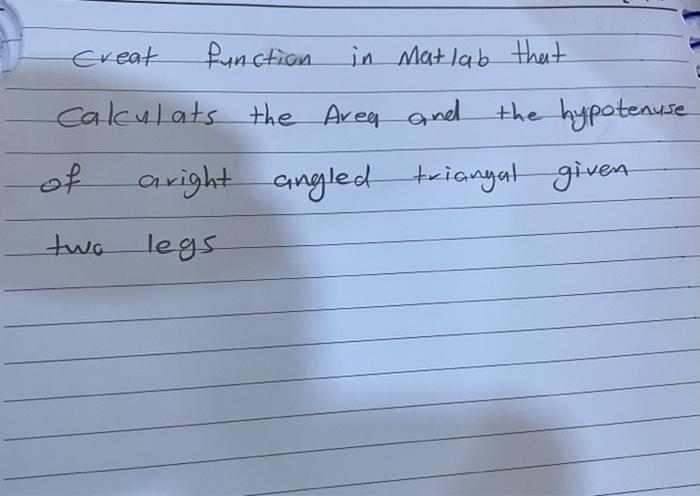 Creat function in Matlab that
Calculats the Area and the hypotenuse
of aright angled triangal given
two legs